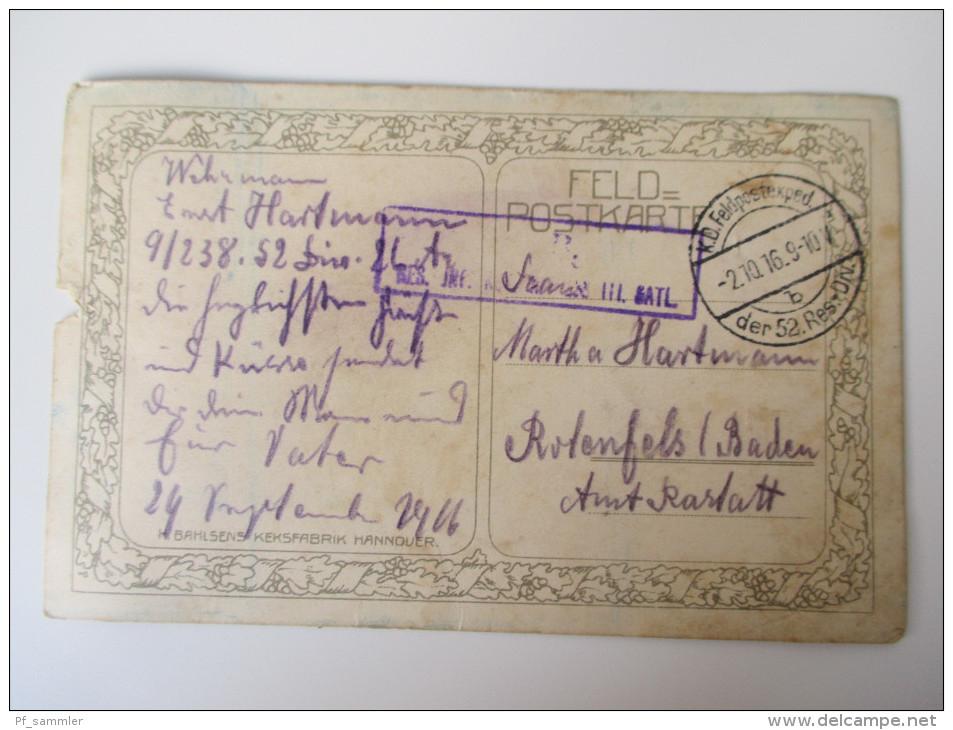 Wehrmann
Ernst Hartmann
9/238. 52 Div. 26. A.
die herzlichsten Grüße
und Küsse sendet
Dir dein Mann und
Eür Vater
29 September 1916
H. BAHLSENS KEKSFABRIK HANNOVER.
FELD=
POSTKARTE
RES. INF. III. BATL.
K.D. Feldpostexped.
-2.10.16.9-10V
b
der 52. Res. Div.
Martha Hartmann
Rotenfels / Baden
Amt Rastatt
Pf_sammler
delcampe.net